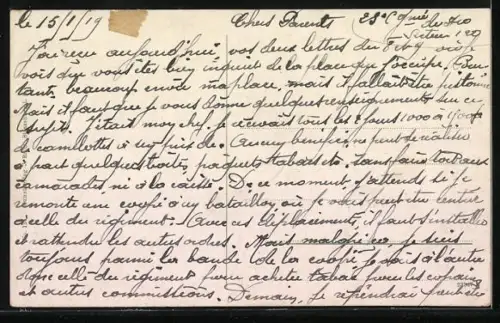 le 15/1/19 Chers Parents 23e Cie
Secteur 129
J'ai reçu aujourd'hui vos deux lettres du 8 & 9 et je
vois que vous êtes bien de la place que j'occupe. Pour
tant beaucoup envie ma place, mais il fallait être pistonné
Mais il faut que je vous donne quelques renseignements sur ce
sujet. J'étais moy chef. Je recevais tous les 2 jours 1000 à
de camelottes à un prix de. Aucun bénéfice ne peut se réaliser
à part quelques boites, paquets tabacs etc. sans faire tort aux
camarades ni à la caisse. De ce moment j'attends si je
remonte une coopé à un bataillon où je vais peut être rentrer
à celle du régiment. Avec ces déplacements, il faut s'installer
et rattendre les autres ordres. Mais malgré ça, je suis
toujours parmi la bande de la coopé. Je vais à l'autre
donc celle du régiment pour acheter tabac pour les copains
et autres commissions. Demain, je répendrai peut être